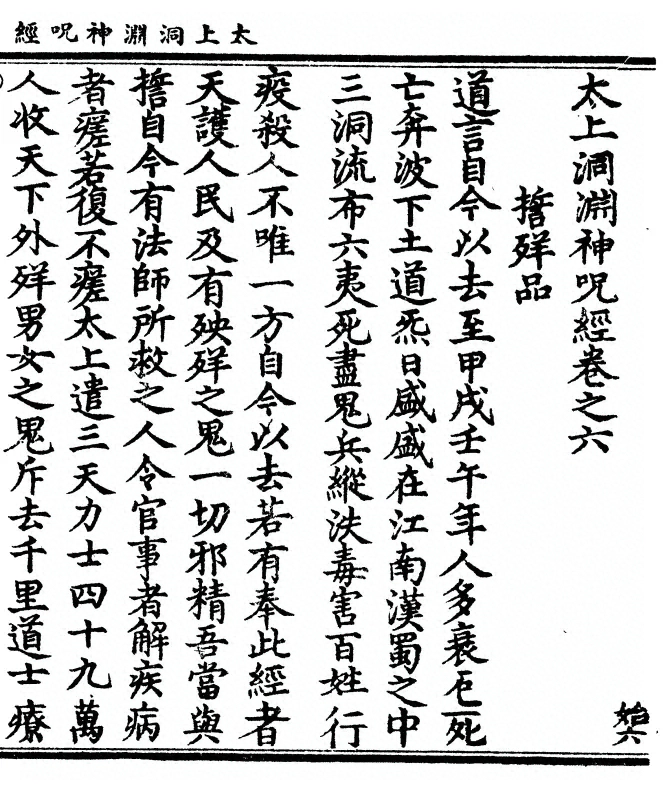 太上洞淵神呪經
太上洞淵神呪經卷之六
始六
誓殃品
道言自今以去至甲戌壬午年人多衰厄死
亡奔波下土道炁日盛盛在江南漢蜀之中
三洞流布六夷死盡鬼兵縱泆毒害百姓行
疫殺人不唯一方自今以去若有奉此經者
天護人民及有殃殃之鬼一切邪精吾當與
誓自今有法師所救之人令官事者解疾病
者瘥若復不瘥太上遣三天力士四十九萬
人收天下外殃男女之鬼斥去千里道士療